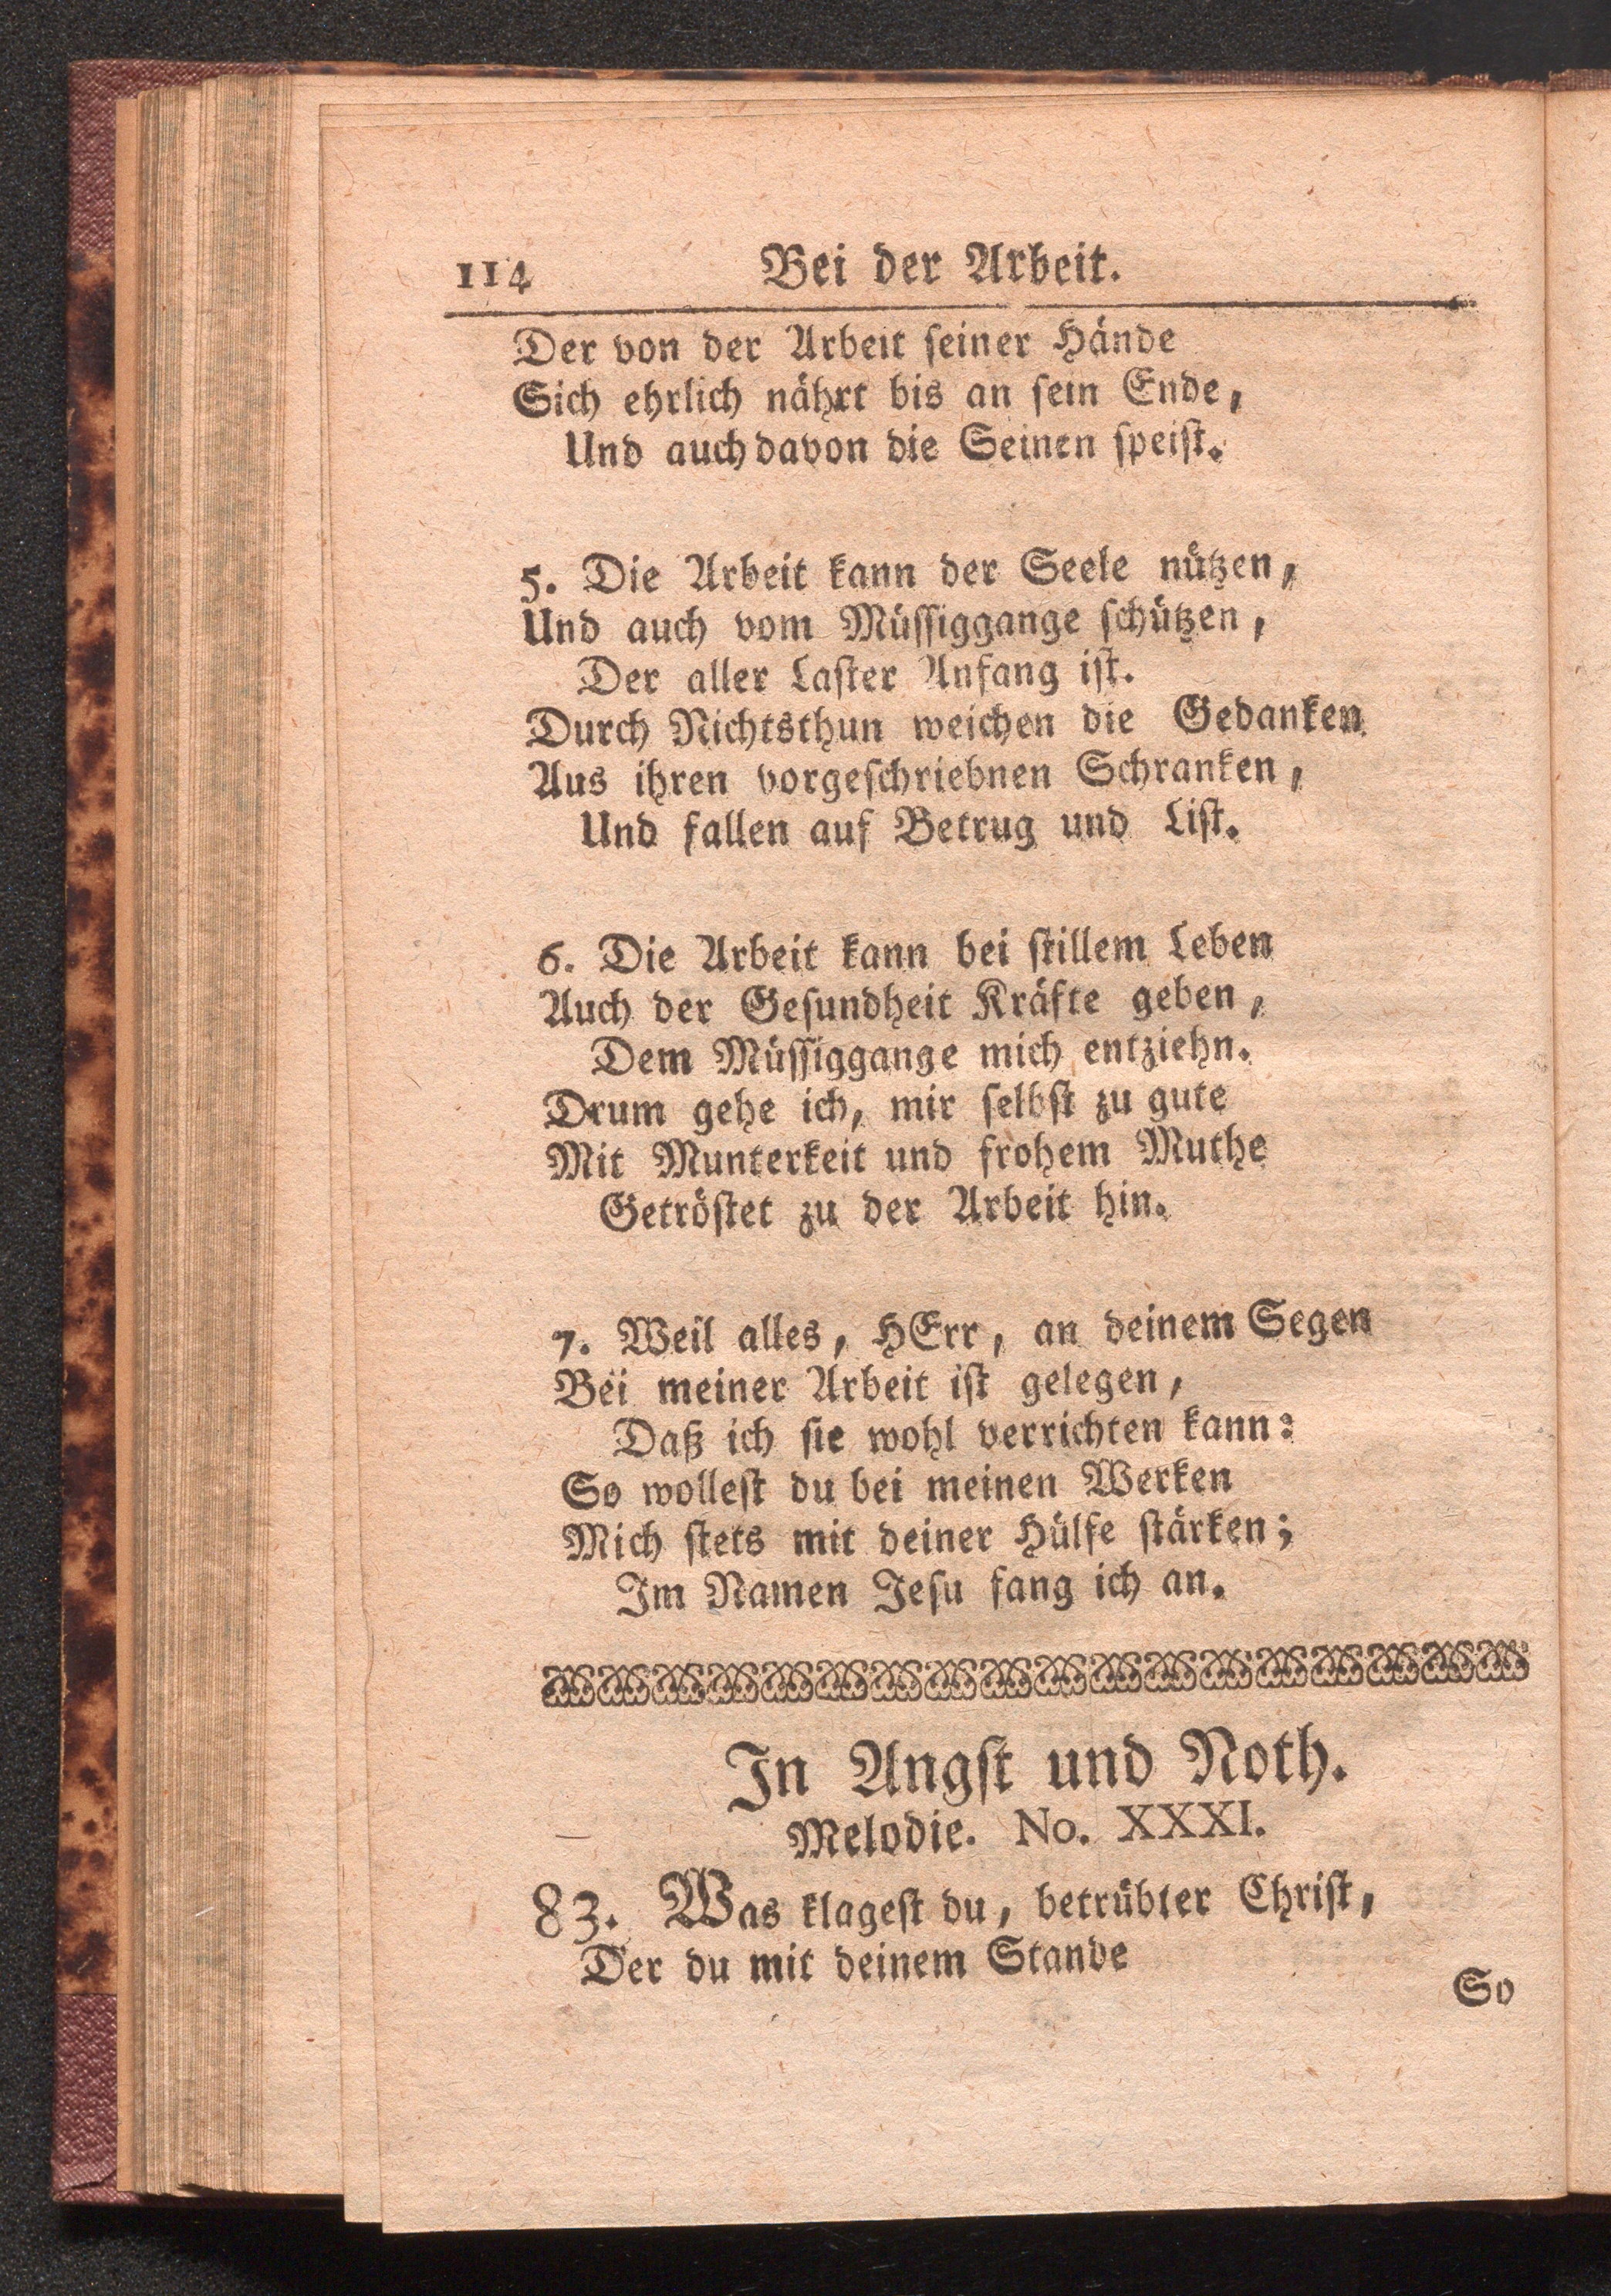 114 Bei der Arbeit.
Der von der Arbeit ſeiner Hände
Sich ehrlich nährt bis an ſein Ende,
Und auch davon die Seinen ſpeiſt.
5. Die Arbeit kann der Seele nützen,
Und auch vom Müſſiggange ſchützen,
Der aller Laſter Anfang iſt.
Durch Nichtsthun weichen die Gedanken
Aus ihren vorgeſchriebnen Schranken,
Und fallen auf Betrug und Liſt.
6. Die Arbeit kann bei ſtillem Leben
Auch der Geſundheit Kräfte geben,
Dem Müſſiggange mich entziehn.
Drum gehe ich, mir ſelbſt zu gute
Mit Munterkeit und frohem Muthe
Getröſtet zu der Arbeit hin.
7. Weil alles, HErr, an deinem Segen
Bei meiner Arbeit iſt gelegen,
Daß ich ſie wohl verrichten kann:
So wolleſt du bei meinen Werken
Mich ſtets mit deiner Hülfe ſtärken;
Im Namen Jeſu fang ich an.
In Angſt und Noth.
Melodie. No. XXXI.
83. Was klageſt du, betrübter Chriſt,
Der du mit deinem Stande
So